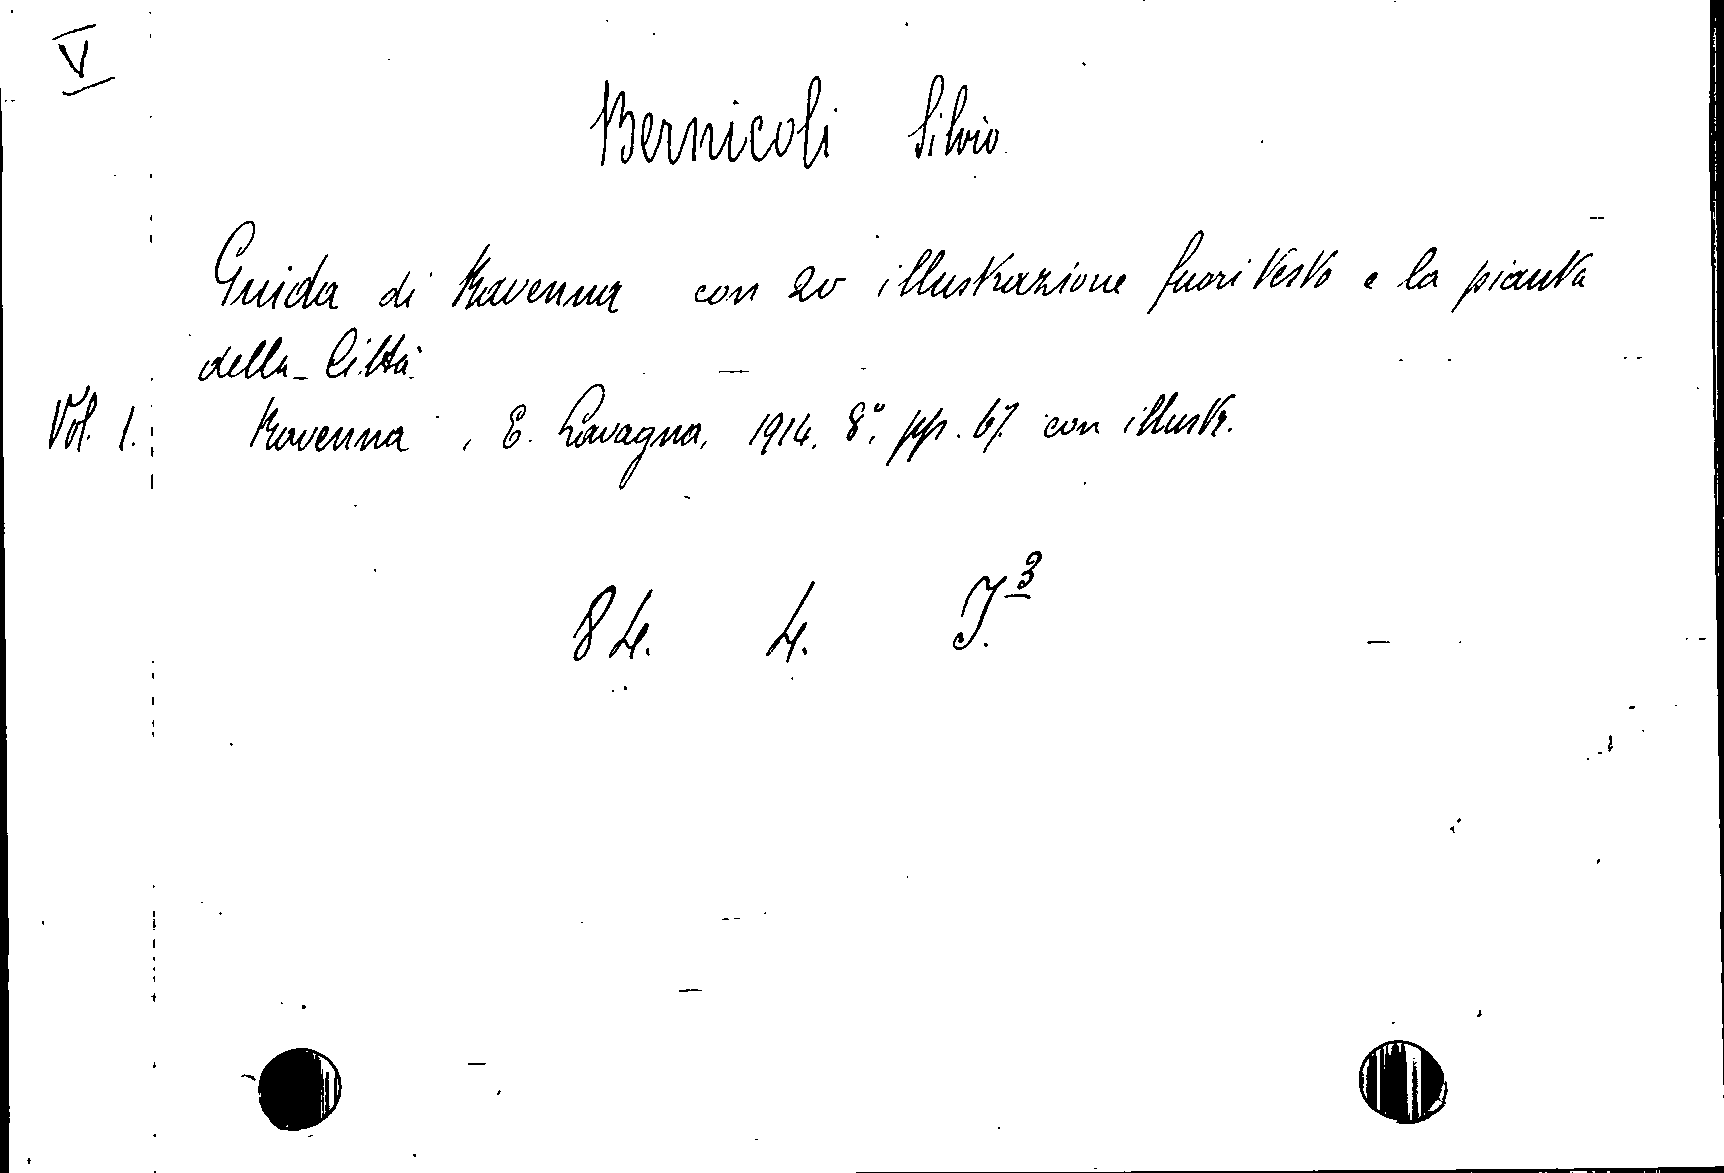 V
Bernicoli Silvio
Guida di Ravenna con 20 illustrazione fuori testo e la pianta
della Città
Vol. 1. Ravenna, E. Lavagna, 1914. 8°. pp. 67. con illustr.
84. 4. J.3